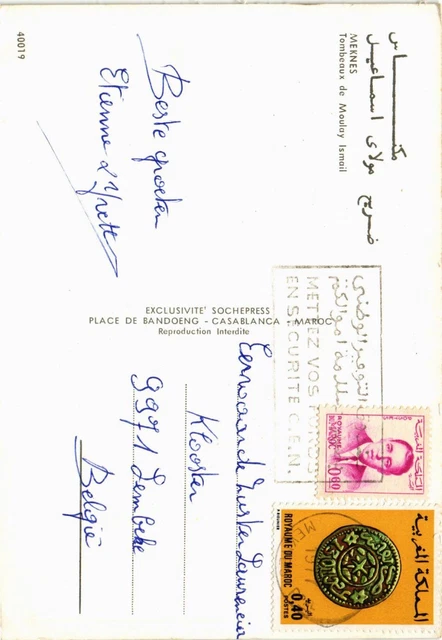 مكنــــاس
ضريح مولاى اسماعيل
MEKNES
Tombeaux de Moulay Ismail
40019
Beste groeten
Etienne & Yvette
EXCLUSIVITE' SOCHEPRESS
PLACE DE BANDOENG - CASABLANCA - MAROC
Reproduction Interdite
التوفير الوطني
METTEZ VOS
EN SECURITE C.E.N.
Eerwaarde Zuster Laurencia
Klooster
9971 Lembeke
België
المملكة المغربية
ROYAUME
DU MAROC
0,60
المملكة المغربية
ROYAUME DU MAROC
0,40
POSTES